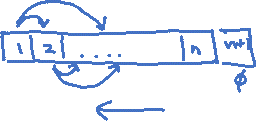 1 2 .... n n+1
φ